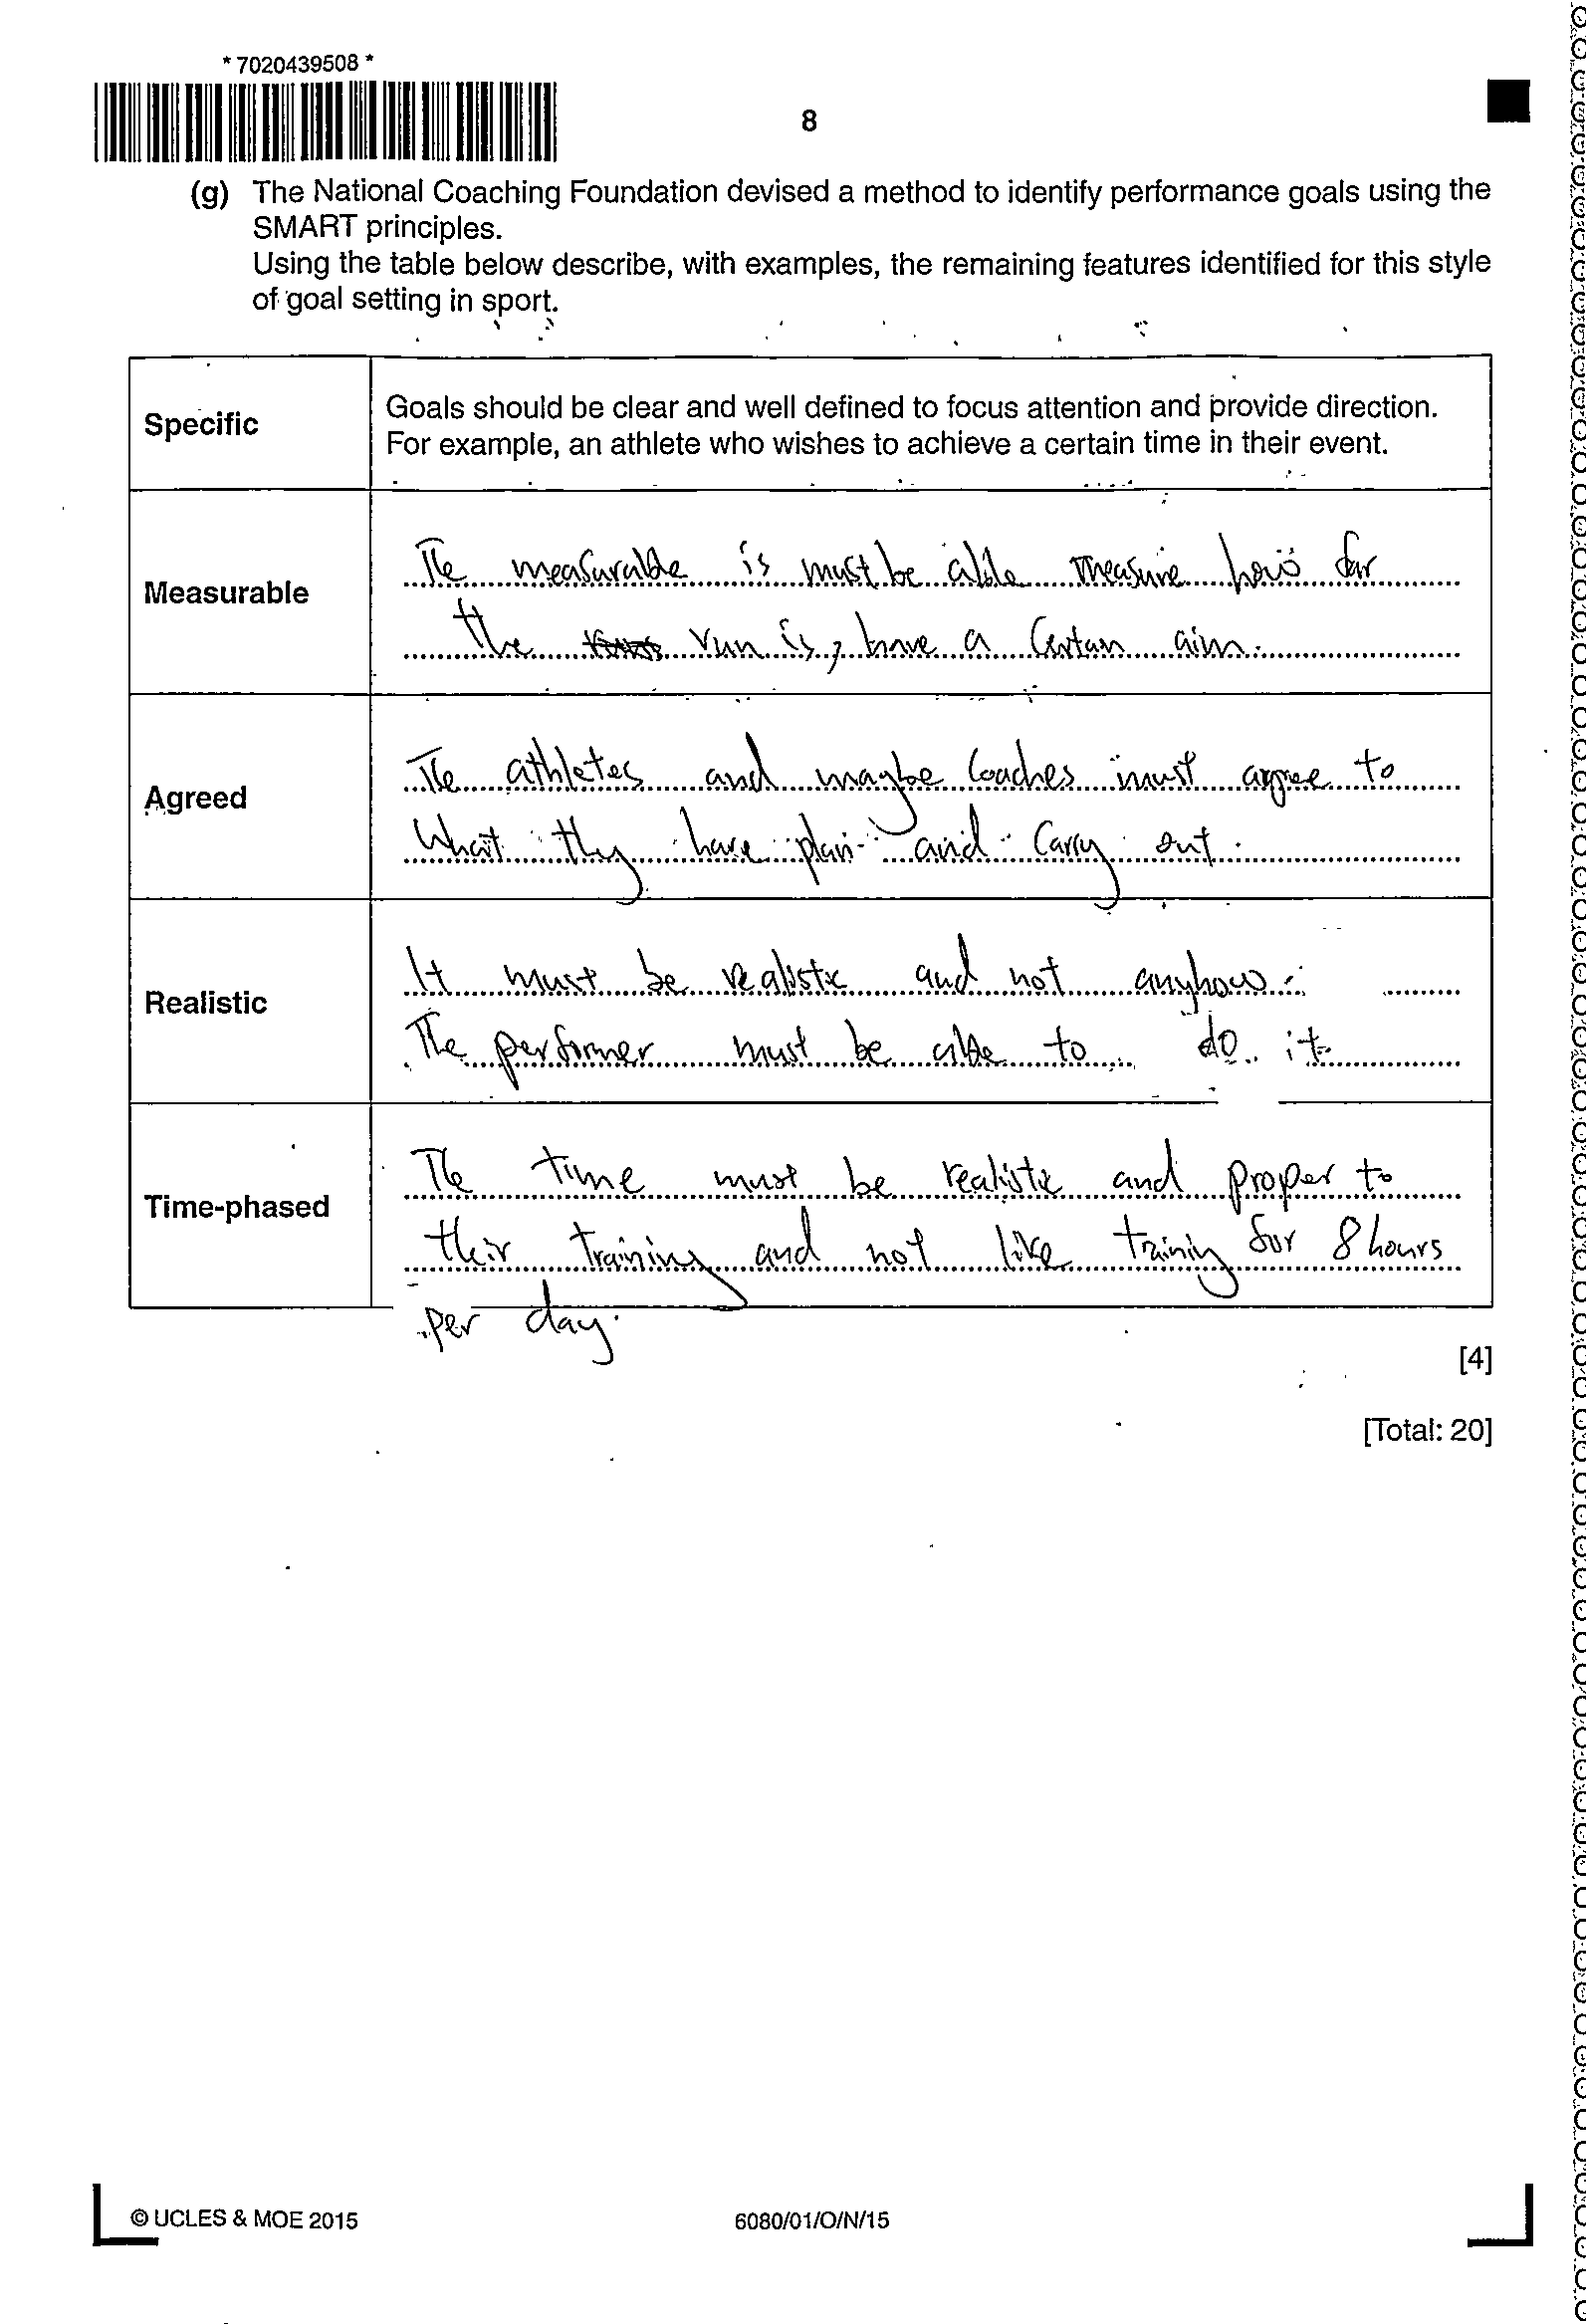 * 7020439508 *
8
(g) The National Coaching Foundation devised a method to identify performance goals using the
SMART principles.
Using the table below describe, with examples, the remaining features identified for this style
of goal setting in sport.
Specific
Goals should be clear and well defined to focus attention and provide direction.
For example, an athlete who wishes to achieve a certain time in their event.
Measurable
The measurable is must be able measure how far
the run is, have a certain aim.
Agreed
The athletes and maybe coaches must agree to
what they have plan and carry out.
Realistic
It must be realistic and not anyhow.
The performer must be able to do it
Time-phased
The time must be realistic and proper to
their training and not like training for 8 hours
per day.
[4]
[Total: 20]
© UCLES & MOE 2015
6080/01/O/N/15